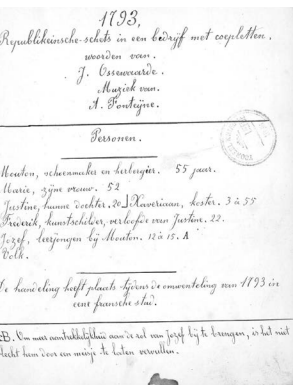 1793,
Republikeinsche-schets in een bedrijf met coupletten.
woorden van.
J. Ossewaarde.
Muziek van.
A. Fonteijne.
Personen.
Mouton, schoenmaker en herbergier. 55 jaar.
Marie, zijne vrouw. 52
Justine, hunne dochter. 20 Xaveriaan, koster. 3 à 55
Frederik, kunstschilder, verloofde van Justine. 22.
Jozef, leerjongen bij Mouton. 12 à 15.
Volk.
De handeling heeft plaats tijdens de omwenteling van 1793 in
eene fransche stad.
NB. Om meer aantrekkelijkheid aan de rol van Jozef bij te brengen, is het niet
slecht hem door een meisje te laten vervullen.